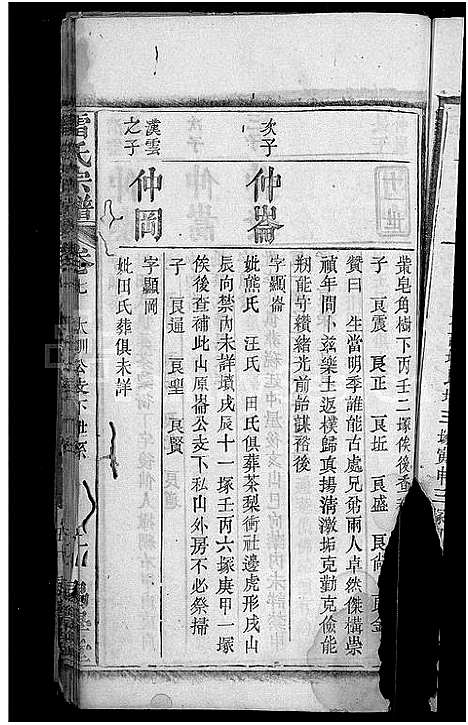 十一世
葉皂角樹下丙壬二塚俟後查
子 艮震 艮正 艮坵 艮盛 艮尚 艮金
贊曰 生當明季誰能古處兄弟兩人卓然傑構崇
禎年間卜茲樂土返樸歸真揚清激垢克勤克儉能
剏能守纘緒光前詒謀裕後
次子
仲崙
字顯崙
妣熊氏 汪氏 田氏俱葬茶梨衝社邊虎形戌山
辰向禁內未詳墳戌辰十一塚壬丙六塚庚甲一塚
俟後查補此山原崙公支下私山外房不必祭掃
子 艮通 艮聖 艮賢
漢雲之子
仲岡
字顯岡
妣田氏葬俱未詳
雷氏宗譜
卷七
大訓公支下世系